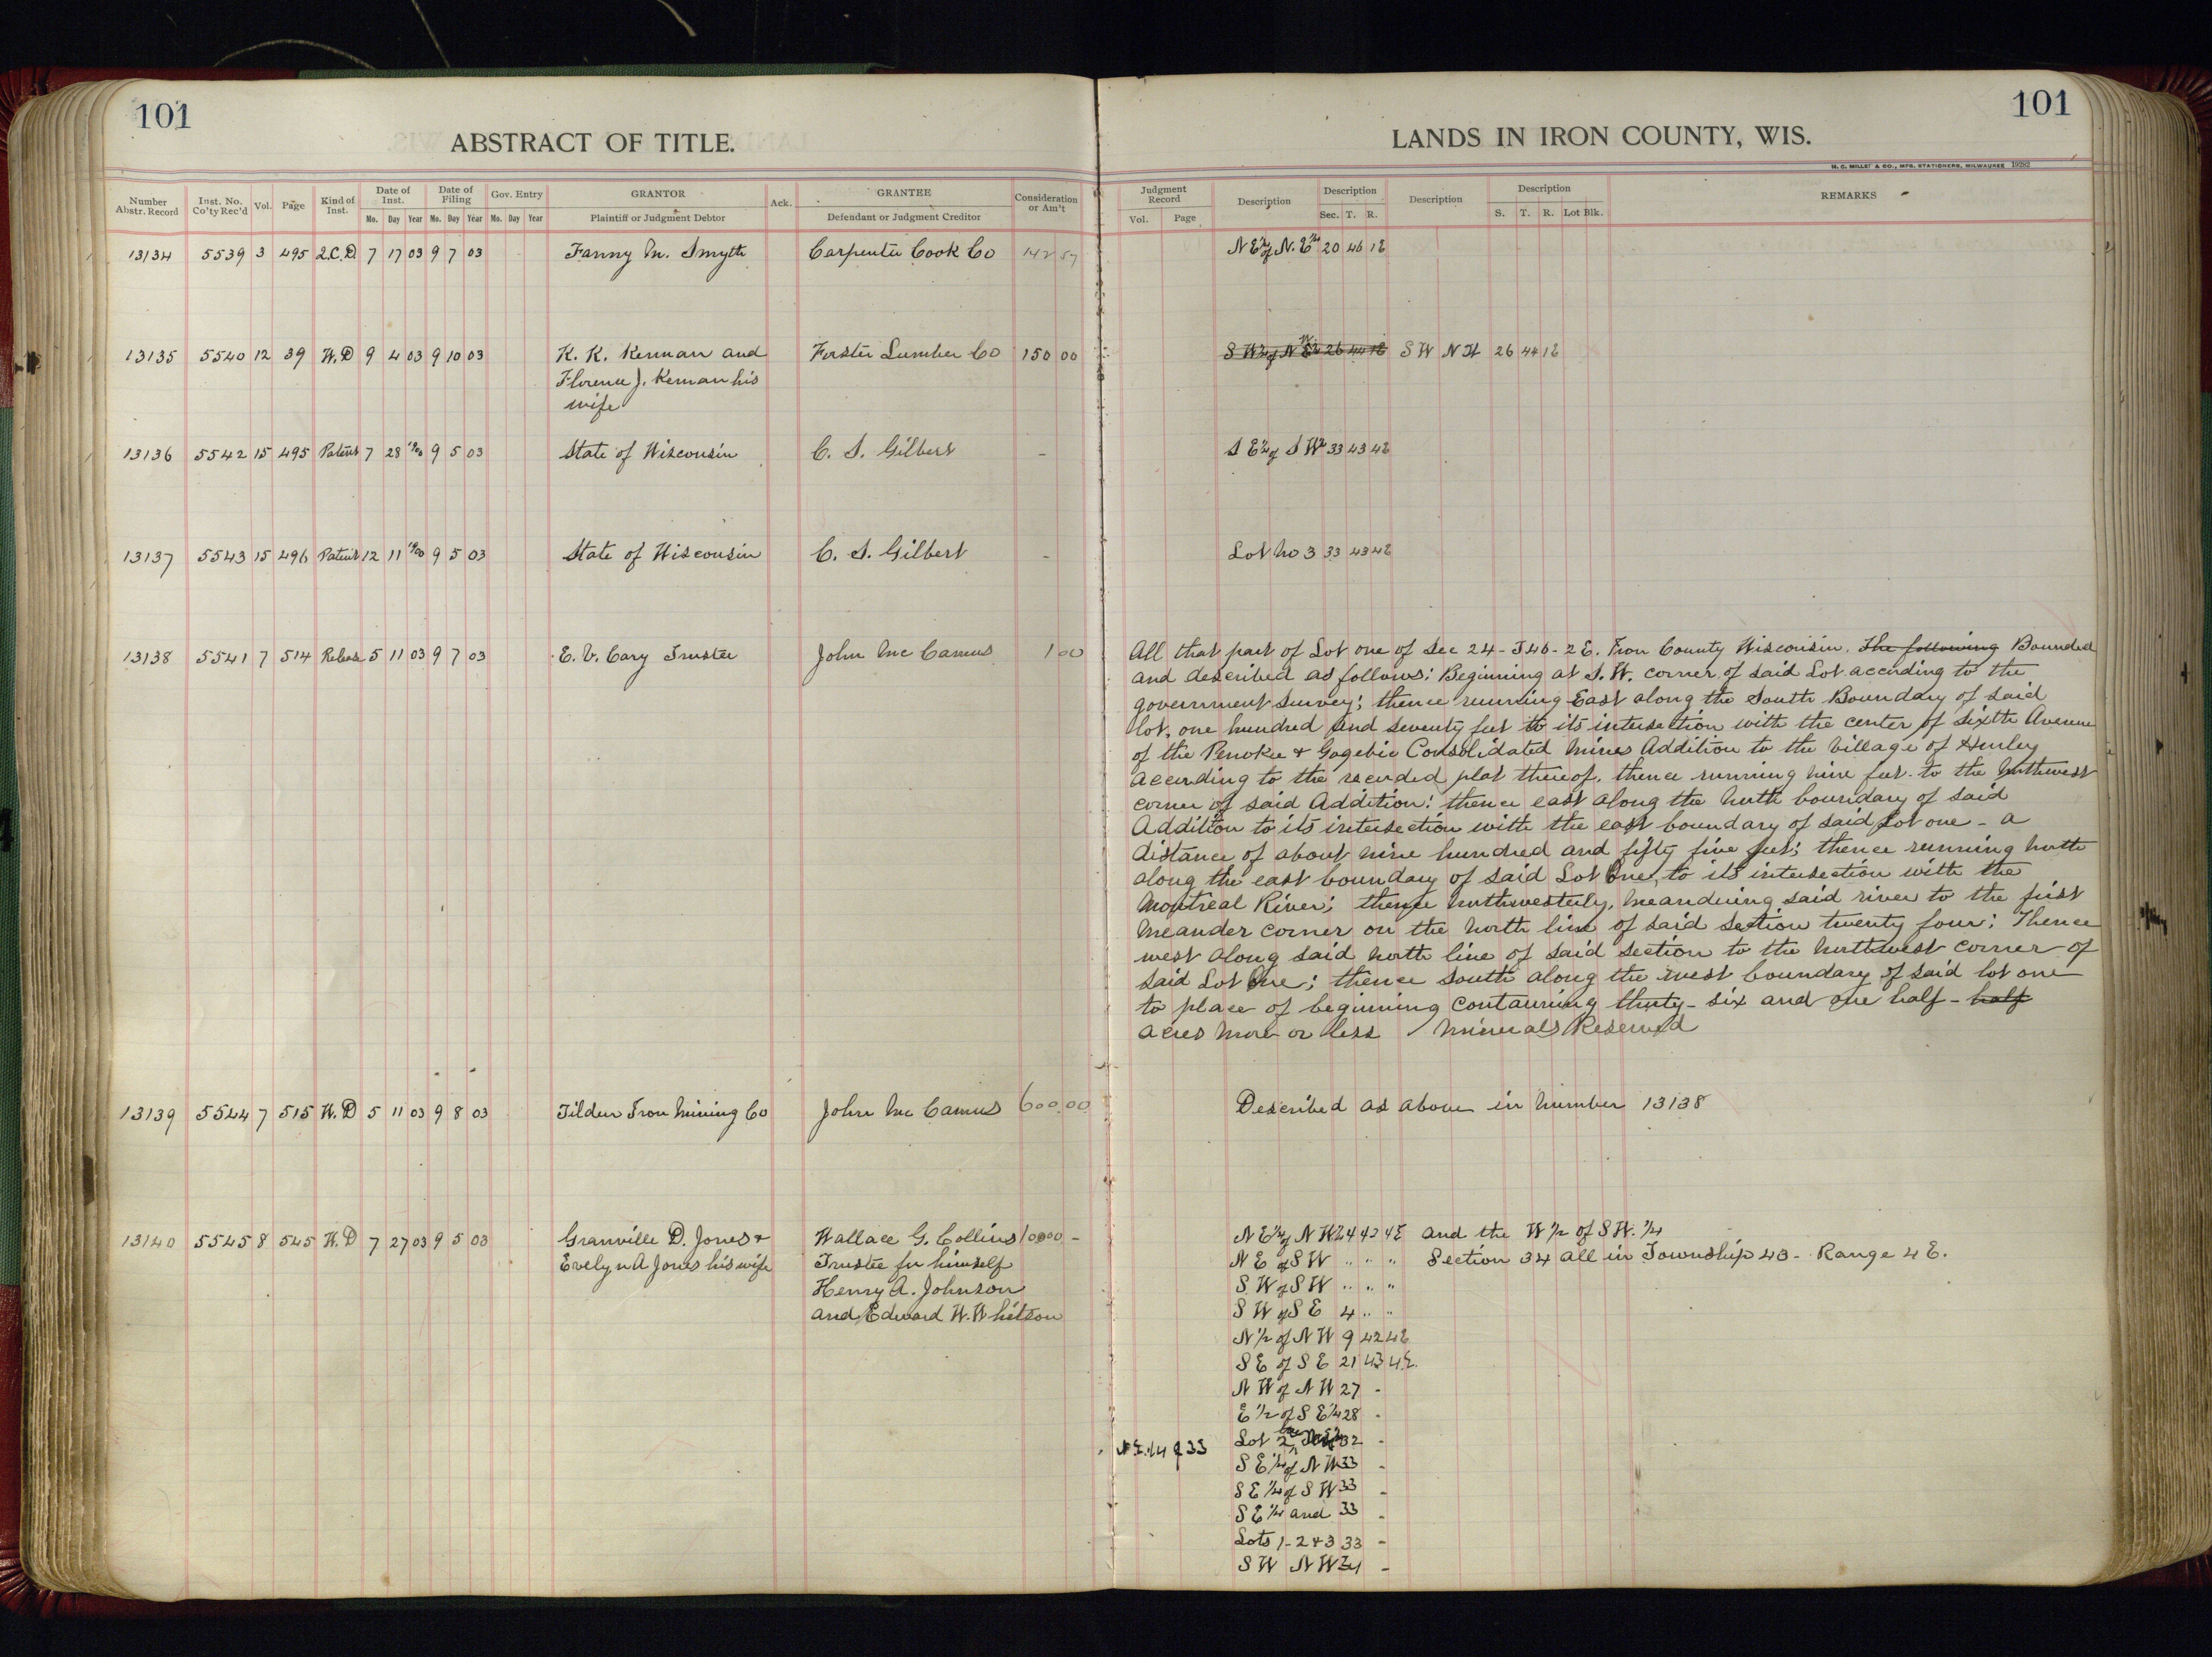 101
ABSTRACT OF TITLE.
Number Abstr. Record Inst. No. Co'ty Rec'd Vol. Page Kind of Inst. Date of Inst. Mo. Day Year Date of Filing Mo. Day Year Gov. Entry Mo. Day Year GRANTOR Plaintiff or Judgment Debtor Ack. GRANTEE Defendant or Judgment Creditor Consideration or Am't
13134 5539 3 495 Q.C.D 7 17 03 9 7 03 Fanny M. Smyth Carpenter Cook Co 142 57
13135 5540 12 39 W.D 9 4 03 9 10 03 K. K. Kennan and Forster Lumber Co 150 00
Florence J. Kennan his
wife
13136 5542 15 495 Patent 7 28 1900 9 5 03 State of Wisconsin C. S. Gilbert -
13137 5543 15 496 Patent 12 11 1900 9 5 03 State of Wisconsin C. S. Gilbert -
13138 5541 7 514 Release 5 11 03 9 7 03 E. V. Cary Trustee John Mc Camus 1 00
13139 5544 7 515 W.D 5 11 03 9 8 03 Tilden Iron Mining Co John Mc Camus 600.00
13140 5545 8 545 W.D 7 27 03 9 5 03 Granville D. Jones + Wallace G. Collins 10000 -
Evelyn A Jones his wife Trustee for himself
Henry A. Johnson
and Edward W. Whitson
101
LANDS IN IRON COUNTY, WIS.
H. C. MILLER & CO., MFG. STATIONERS, MILWAUKEE 19282
Judgment Record Vol. Page Description Description Sec. T. R. Description Description S. T. R. Lot Blk. REMARKS
N E 1/4 of N. E 1/4 20 46 1E
S W 1/4 of N 26 44 1E S W N W 26 44 1E
S E 1/4 of S W 1/4 33 43 4E
Lot No 3 33 43 4E
All that part of Lot one of Sec 24 - T46 - 2 E. Iron County Wisconsin. The following Bounded
and described as follows: Beginning at S. W. corner of said Lot according to the
government survey; thence running East along the South Boundary of said
lot, one hundred and seventy feet to its intersection with the center of Sixth Avenue
of the Penokee + Gogebic Consolidated Mines Addition to the Village of Hurley
according to the recorded plat thereof, thence running nine feet to the Northwest
corner of said Addition: thence east along the North boundary of said
Addition to its intersection with the east boundary of said Lot one - a
distance of about nine hundred and fifty five feet; thence running North
along the east boundary of said Lot One, to its intersection with the
Montreal River; thence northwesterly, meandering said river to the first
meander corner on the North line of said section twenty four; Thence
west along said north line of said section to the Northwest corner of
said Lot One; thence south along the west boundary of said lot one
to place of beginning containing thirty - six and one half - half
acres more or less Minerals Reserved
Described as above in number 13138
N E 1/4 of N W 24 42 4E and the W 1/2 of S W. 1/4
N E of S W " " " Section 34 all in Township 43 - Range 4 E.
S W of S W " " "
S W of S E 4 " "
N 1/2 of N W 9 42 4E
S E of S E 21 43 4E.
N W of N W 27 -
E 1/2 of S E 1/4 28 -
N.E. 1/4 of 33 Lot 2 32 -
S E 1/4 of N W 33 -
S E 1/4 of S W 33 -
S E 1/4 and 33 -
Lots 1 - 2 + 3 33 -
S W N W 34 -